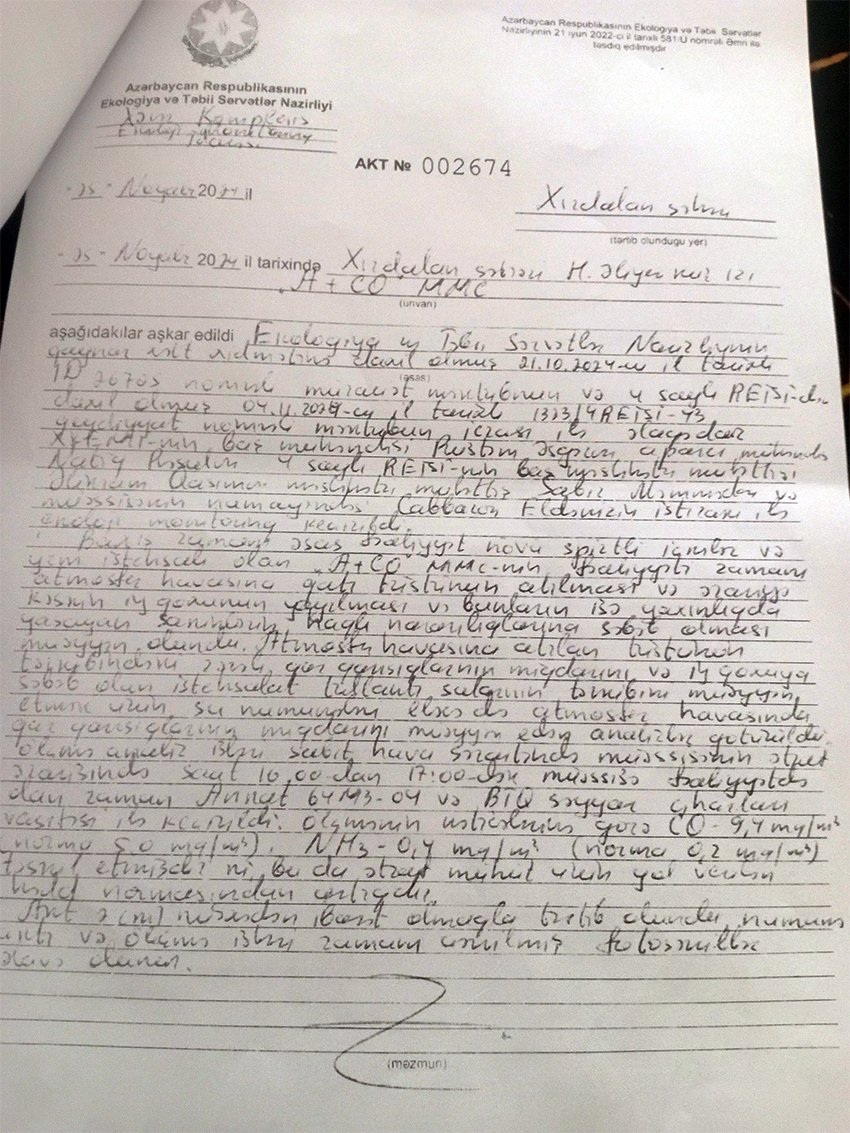 Azərbaycan Respublikasının Ekologiya və Təbii Sərvətlər
Nazirliyinin 21 iyun 2022-ci il tarixli 581/U nömrəli Əmri ilə
təsdiq edilmişdir
Azərbaycan Respublikasının
Ekologiya və Təbii Sərvətlər Nazirliyi
AKT № 002674
Noyabr 2024 il
Xırdalan şəhəri
(tərtib olunduğu yer)
Noyabr 2024 il tarixində Xırdalan şəhəri H. Əliyev
"A+CO" MMC
(ünvan)
aşağıdakılar aşkar edildi Ekologiya və Təbii Sərvətlər Nazirliyinin
qaynar xətt xidmətinə daxil olmuş 21.10.2024-cü il tarixli
(əsas)
ID nömrəli müraciət məktubunun və 4 saylı RETSİ-də
daxil olmuş 04.11.2024-cü il tarixli 1373/4RETSİ-43
qeydiyyat nömrəli məktubun icrası ilə əlaqədar
baş mühəndisi aparıcı mühəndis
4 saylı RETSİ-nin baş məsləhətçi
və
müəssisənin nümayəndəsi iştirakı ilə
ekoloji monitorinq keçirildi.
Baxış zamanı əsas fəaliyyət növü spirtli içkilər və
yem istehsalı olan "A+CO" MMC-nin fəaliyyəti zamanı
atmosfer havasına qatı tüstünün atılması və ətrafa
kəskin iy qoxunun yayılması və bunların isə yaxınlıqda
yaşayan sakinlərin haqlı narazılıqlarına səbəb olması
müəyyən olundu. Atmosfer havasına atılan tüstünün
tərkibindəki zərərli qaz qarışıqlarının miqdarını və iy qoxuya
səbəb olan istehsalat tullantı sularının tərkibini müəyyən
etmək üçün su nümunələri eləcə də atmosfer havasında
qaz qarışıqlarının miqdarını müəyyən edən analizlər götürüldü.
Ölçmə analiz işləri sabit hava şəraitində müəssisənin ətraf
ərazisində saat 16:00-dan 17:00-dək müəssisə fəaliyyətdə
olan zaman və cihazları
vasitəsi ilə keçirildi. Ölçmənin nəticələrinə görə CO - 9,4 mq/m³
(norma 5,0 mq/m³), NH3 - 0,4 mq/m³ (norma 0,2 mq/m³)
təşkil etmişdir ki, bu da ətraf mühit üçün yol verilən
hədd normasından artıqdır.
Akt 2 (iki) nüsxədən ibarət olmaqla tərtib olundu, nümunə
aktı və ölçmə işləri zamanı çəkilmiş fotoşəkillər
əlavə olunur.
(məzmun)